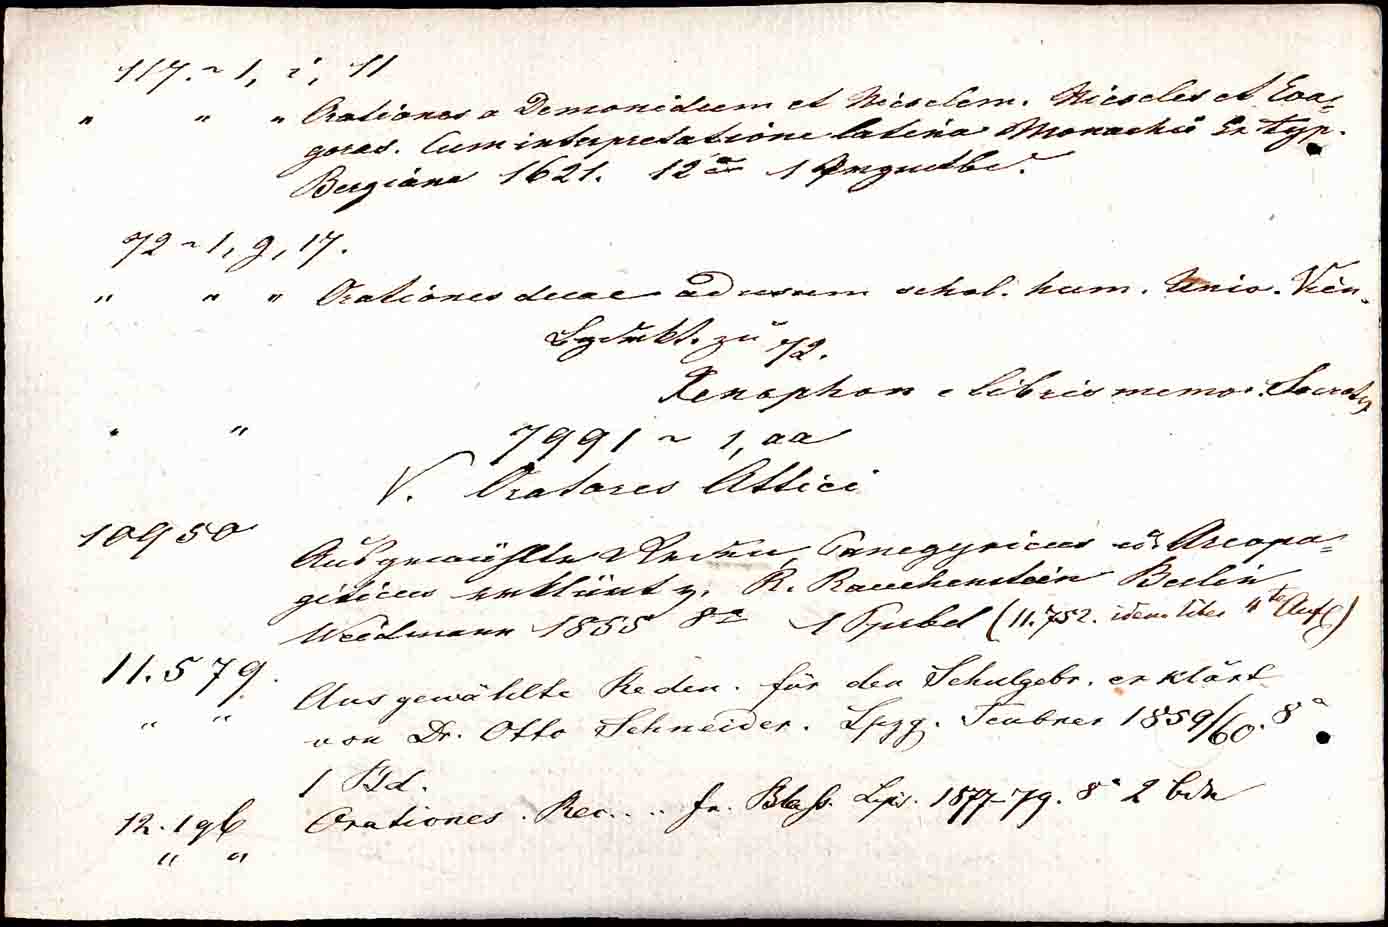 117. ~ 1, i, 11
" " " Orationes a Demonicum et Nicoclem. Nicocles et Eva=
goras. Cum interpretatione latina Monachii Ex typ.
Bergiana 1621. 12°
72 ~ 1, g, 17.
" " " Orationes duae ad usum schol. hum. Univ. Vien.
zu 72.
Xenophon e libris memor. Socratis
" " 7991 ~ 1, aa
V. Oratores Attici
10950 Ausgewählte Reden, Panegyricus und Areopa=
giticus erklärt v. R. Rauchenstein Berlin
Weidmann 1855 8° 1 (11.752. idem liber 4te Aufl)
11.579. Ausgewählte Reden. für den Schulgebr. erklärt
" " von Dr. Otto Schneider. Lpzg. Teubner 1859/60. 8°
1 Bd.
12.196 Orationes. Rec. .. Fr. Blaß. Lips. 1877-79. 8° 2 bde
" "